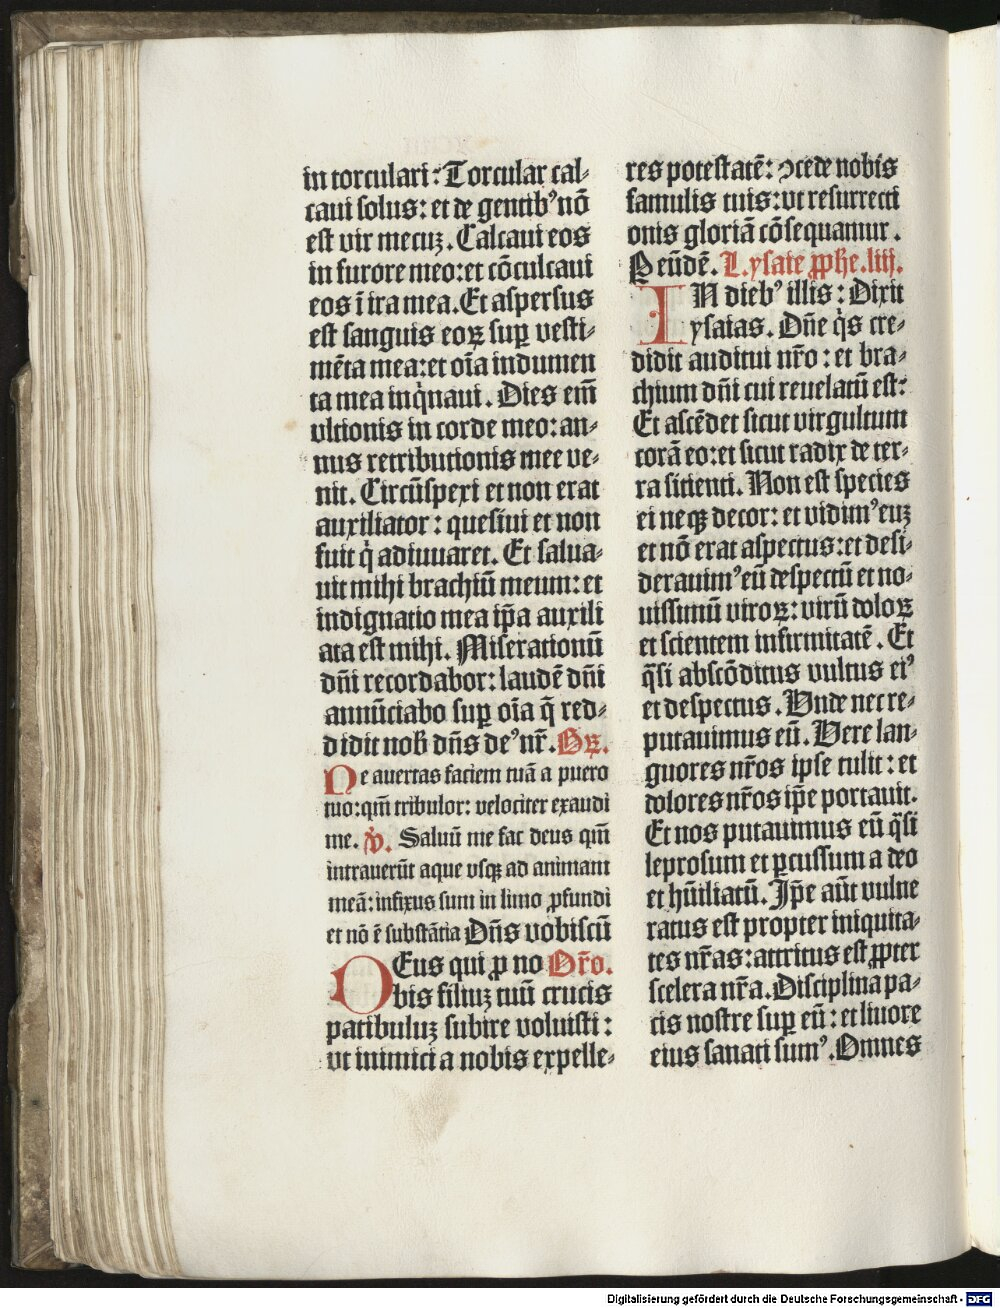 in torculari: Torcular cal⸗
caui solus: et de gentibꝰ nō
est vir mecuꝫ. Calcaui eos
in furore meo: et cōculcaui
eos ī ira mea. Et aspersus
est sanguis eoꝝ suꝑ vesti⸗
mēta mea: et oīa indumen
ta mea inq̇naui. Dies em̄
vltionis in corde meo: an⸗
nus retributionis mee ve⸗
nit. Circūspexi et non erat
auxiliator: quesiui et non
fuit q̇ adiuuaret. Et salua⸗
uit mihi brachiū meum: et
indignatio mea ip̄a auxili
ata est mihi. Miserationū
dn̄i recordabor: laudē dn̄i
annūciabo suꝑ oīa q̄ red⸗
didit nob̄ dn̄s deꝰ nr̄. Gꝝ.
Ne auertas faciem tuā a puero
tuo: qm̄ tribulor: velociter exaudi
me. v̇. Saluū me fac deus qm̄
intrauerūt aque vsqꝫ ad animam
meā: infixus sum in limo ꝓfundi
et nō ē substātia Dn̄s vobiscū
DEus qui ꝑ no Or̄o.
bis filiuꝫ tuū crucis
patibuluꝫ subire voluisti:
vt inimici a nobis expelle⸗
res potestatē: ꝯcede nobis
famulis tuis: vt resurrecti
onis gloriā cōsequamur.
P eūdē. L. ysaie ꝓphe. liij.
IN diebꝰ illis: Dixit
ysaias. Dn̄e q̇s cre⸗
didit auditui nr̄o: et bra⸗
chium dn̄i cui reuelatū est:
Et ascēdet sicut virgultum
corā eo: et sicut radix de ter⸗
ra sitienti. Non est species
ei neqꝫ decor: et vidimꝰ euꝫ
et nō erat aspectus: et desi⸗
derauimꝰ eū despectū et no⸗
uissimū viroꝝ: virū doloꝝ
et scientem infirmitatē. Et
q̄si abscōditus vultus eiꝰ
et despectus. Vnde nec re⸗
putauimus eū. Vere lan⸗
guores nr̄os ipse tulit: et
dolores nr̄os ip̄e portauit.
Et nos putauimus eū q̄si
leprosum et ꝑcussum a deo
et hūiliatū. Ip̄e aūt vulne
ratus est propter iniquita⸗
tes nr̄as: attritus est ꝓpter
scelera nr̄a. Disciplina pa⸗
cis nostre suꝑ eū: et liuore
eius sanati sumꝰ. Omnes
Digitalisierung gefördert durch die Deutsche Forschungsgemeinschaft - DFG